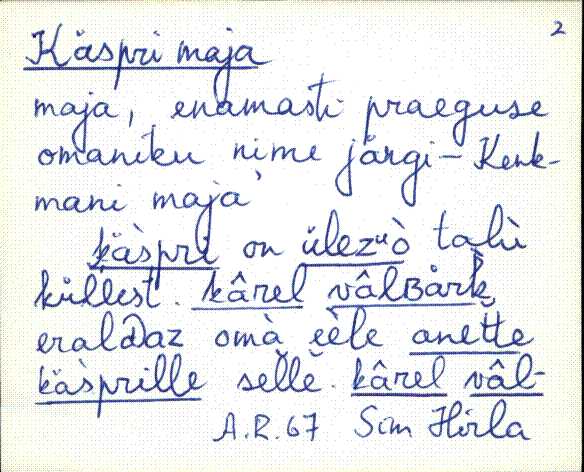 2
Käspri maja
maja, enamasti praeguse
omaniku nime järgi - Kenk-
mani maja'
kä̀spri on ülezᵘò talù
küllest. kârel vâlʙårk
eralᴅaz omà èèle anette
kä̀sprille sellè. kârel vâl-
A.R. 67 Sim Hirla